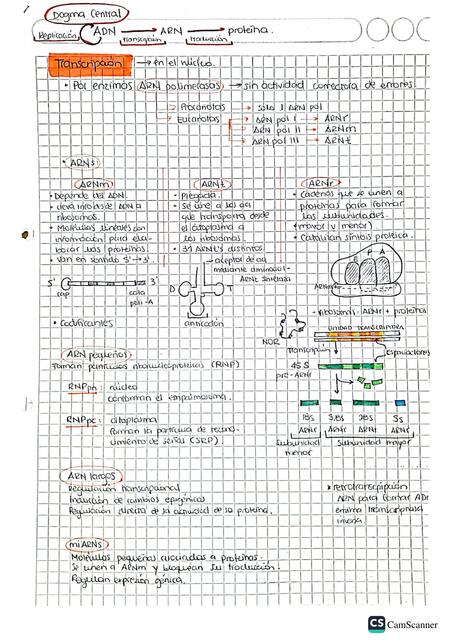 Dogma Central
Replicación ADN → ARN → proteína.
transcripción traducción
Transcripción → en el núcleo.
• Por enzimas ARN polimerasas → sin actividad correctora de errores.
Procariotas → solo 1 ARN pol
Eucariotas → ARN pol I → ARNr
ARN pol II → ARNm
ARN pol III → ARNt
• ARNs
ARNm
• Depende del ADN.
• lleva info desde ADN a
ribosomas.
• Moléculas lineales con
información para ela-
borar las proteínas.
• Van en sentido 5'→3'.
5' 3'
cap cola
poli-A
• Codificantes
ARNt
• Plegada.
• Se une a los aa
que transporta desde
el citoplasma a
los ribosomas.
• 31 ARNt's distintos.
aceptor de aa
mediante aminoacil-
ARNt sintetasa
D T
anticodón
ARNr
• Cadenas que se unen a
proteínas para formar
las subunidades.
(mayor y menor)
• Catalizan síntesis proteica.
E P A
ARNm
- Ribosomas: ARNr + proteínas
NOR
UNIDAD TRANSCRIPTORA
Transcripción
Espaciadores
45 S
pre-ARNr
18s 5,8s 28s 5s
ARNr ARNr ARNr ARNr
Subunidad
menor
Subunidad mayor
ARN pequeños
Forman partículas ribonucleoproteicas (RNP)
RNPpn: núcleo
conforman el empalmosoma.
RNPpc: citoplasma
Forman la partícula de recono-
cimiento de señal (SRP).
ARN largos
Regulación transcripcional
Inducción de cambios epigénicos
Regulación directa de la actividad de la proteína.
• retrotranscripción
ARN para formar ADN
enzima transcriptasa
inversa
miARNs
Moléculas pequeñas asociadas a proteínas.
Se unen a ARNm y bloquean su traducción.
Regulan expresión génica.
CS CamScanner